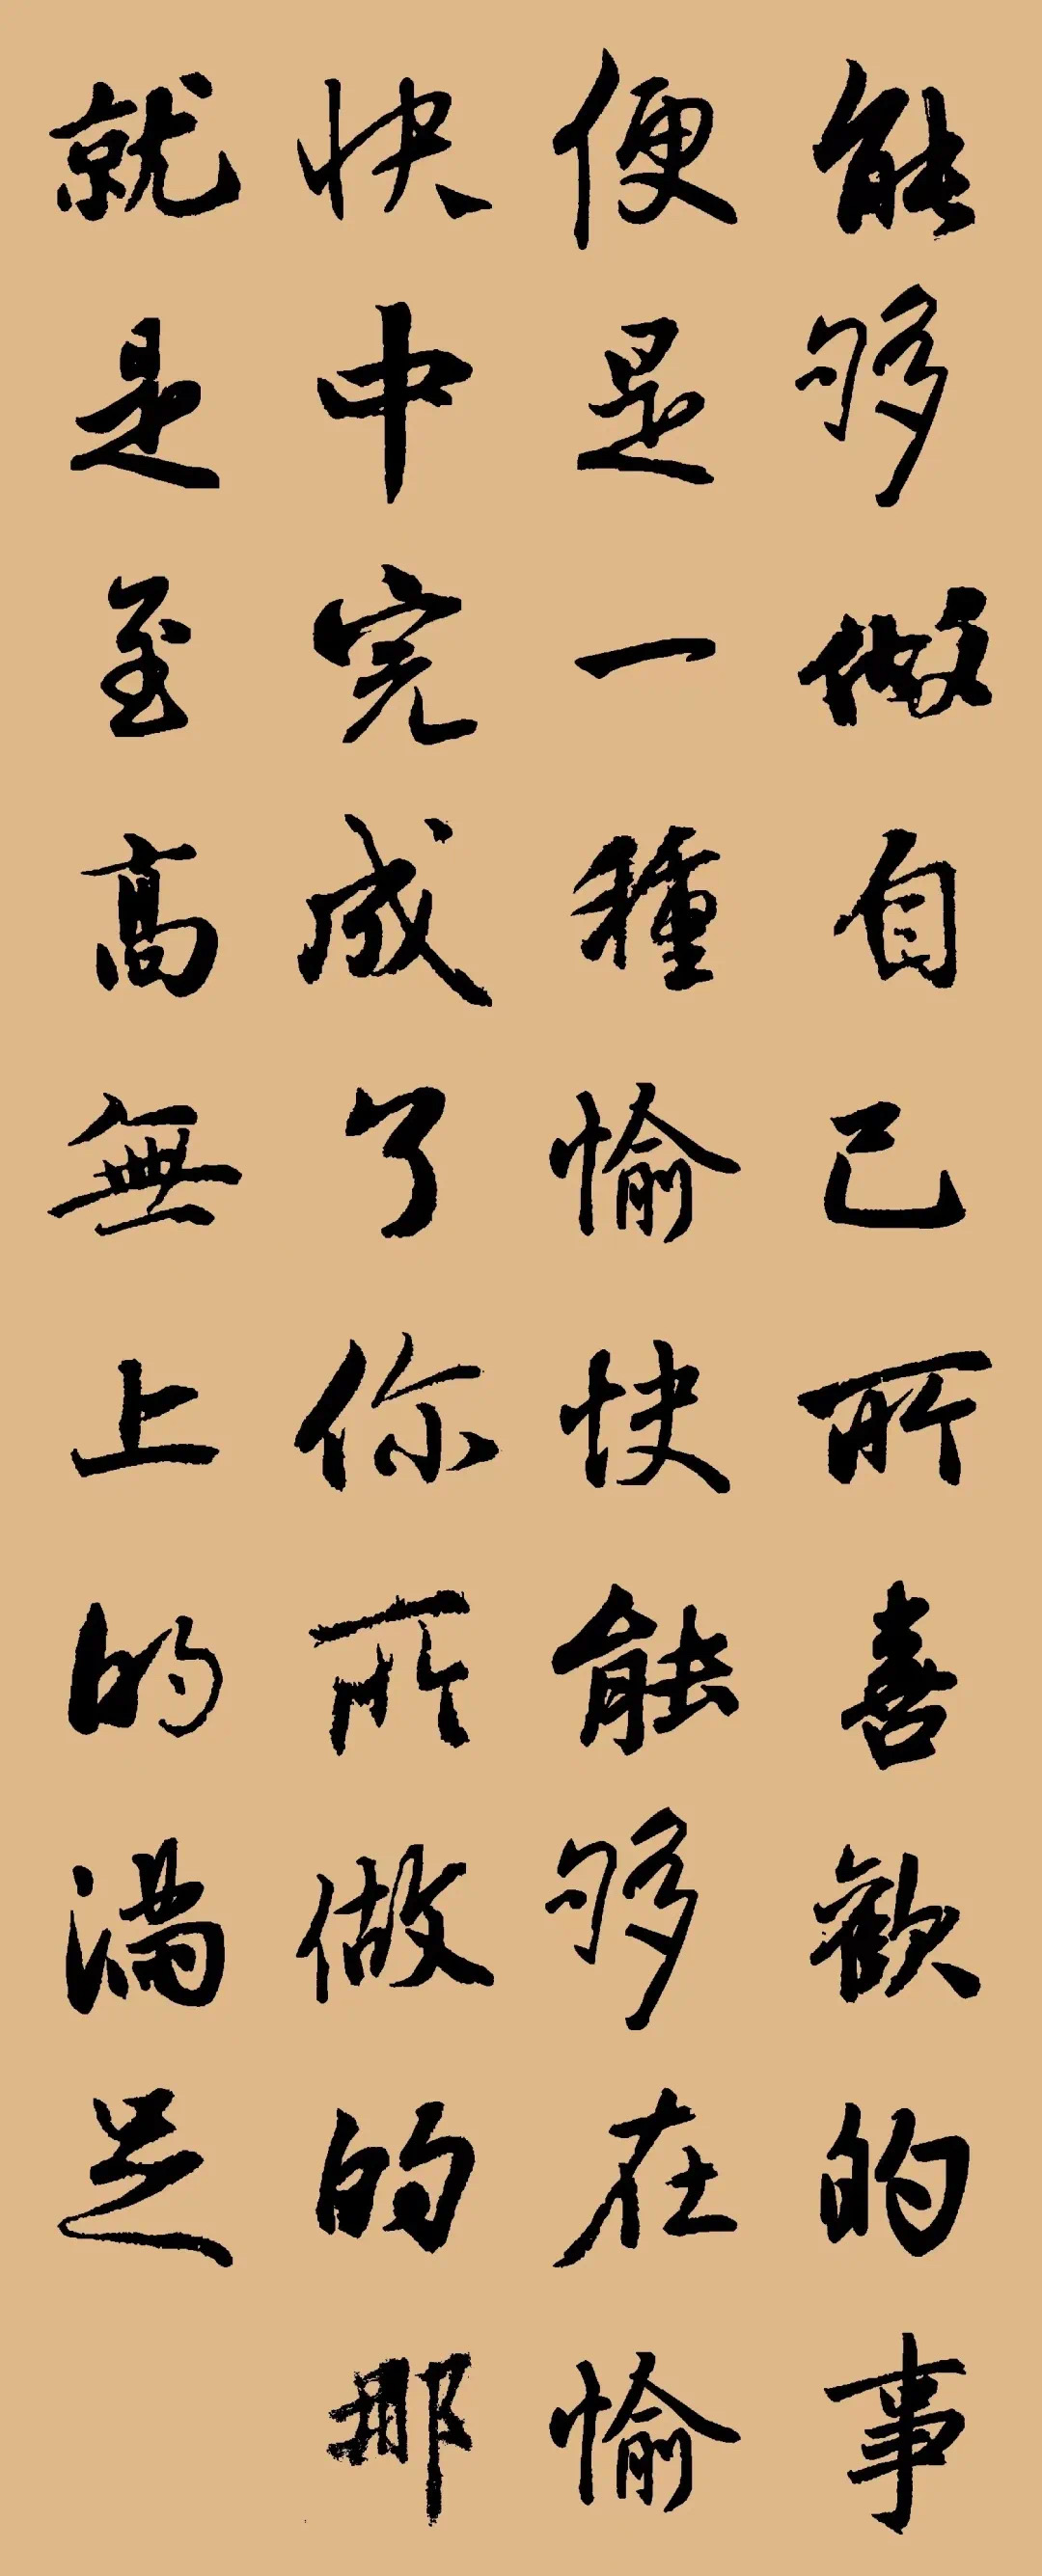 能够做自己所喜歡的事
便是一種愉快能够在愉
快中完成了你所做的那
就是至高無上的滿足